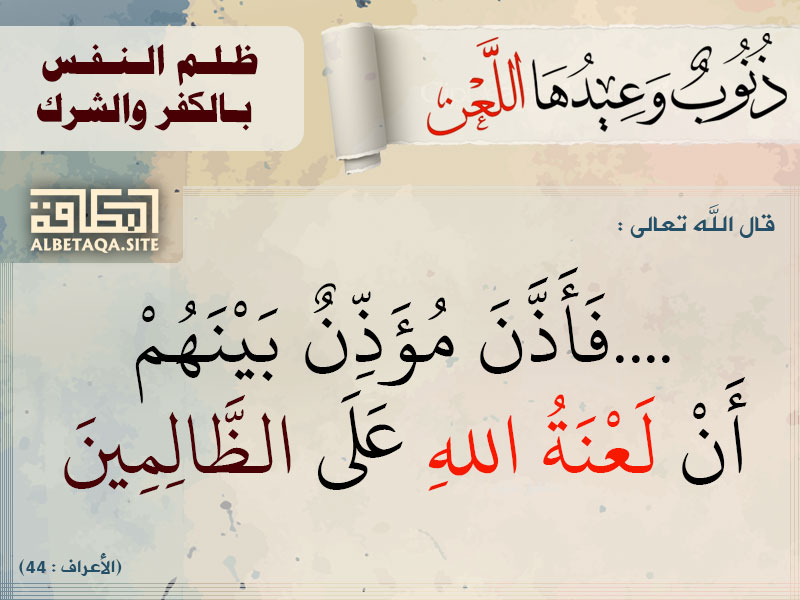 ذُنُوبٌ وَعِيدُهَا اللَّعْن
ظلم النفس
بالكفر والشرك
البطاقة
ALBETAQA.SITE
قال اللَّه تعالى :
....فَأَذَّنَ مُؤَذِّنٌ بَيْنَهُمْ
أَنْ لَعْنَةُ اللهِ عَلَى الظَّالِمِينَ
(الأعراف : 44)